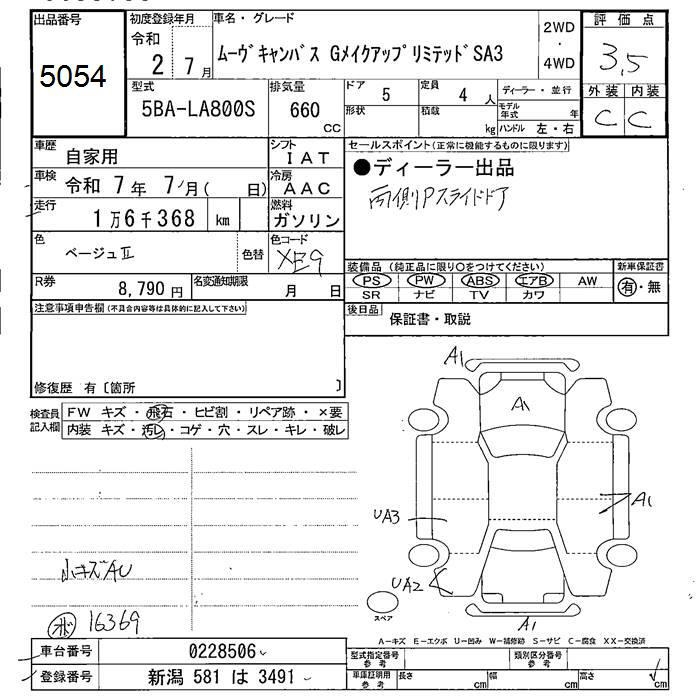 出品番号
5054
初度登録年月
令和
2 7月
車名・グレード
ムーヴキャンバス GメイクアップリミテッドSA3
2WD
・
4WD
評価点
3.5
外装 内装
C C
型式
5BA-LA800S
排気量
660
CC
ドア 5
形状
定員 4 人
積載 kg
ディーラー・並行
モデル年式 年
ハンドル 左・右
車歴 自家用
シフト
IAT
車検 令和 7年 7月( 日)
冷房
AAC
走行 1万6千368 km
燃料
ガソリン
色 ベージュⅡ
色替
色コード
XE9
R券 8,790円
名変通知期限 月 日
セールスポイント(正常に機能するものに限ります)
●ディーラー出品
両側Pスライドドア
装備品(純正品に限り○をつけてください)
新車保証書
PS PW ABS エアB AW
有・無
SR ナビ TV カワ
後日品 保証書・取説
注意事項申告欄(不具合内容等は具体的に記入して下さい)
修復歴 有〔箇所 〕
検査員記入欄
FW キズ・飛石・ヒビ割・リペア跡・×要
内装 キズ・汚レ・コゲ・穴・スレ・キレ・破レ
小キズAU
16369
A1
A1
A1
UA3
UA2
A1
スペア
A-キズ E-エクボ U-凹み W-補修跡 S-サビ C-腐食 XX-交換済
車台番号 0228506
登録番号 新潟 581 は 3491
型式指定番号
参考
類別区分番号
参考
車庫証明用
参考
長さ cm
幅 cm
高さ cm